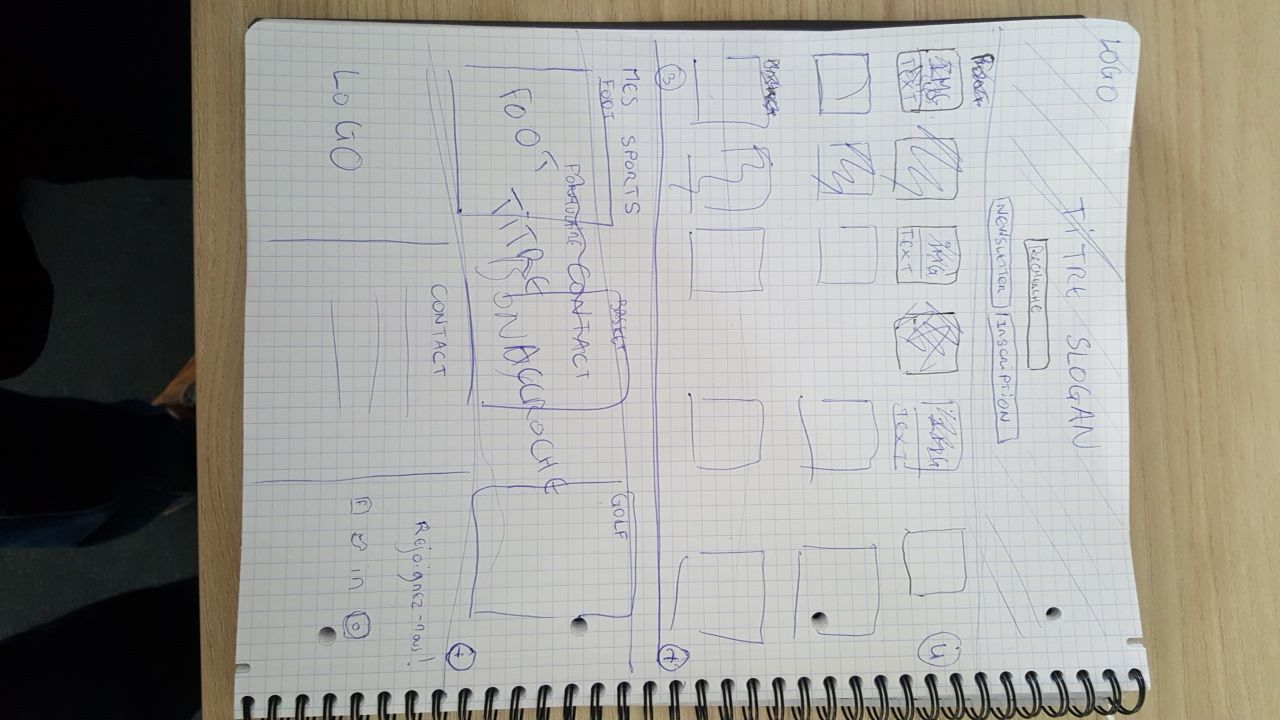 LOGO
TITRE SLOGAN
RECHERCHE
NEWSLETTER INSCRIPTION
IMG IMG IMG
TEXT TEXT TEXT
3
MES SPORTS
FOOT BASKET GOLF
FORMULAIRE CONTACT
FOOT TITRE BON ACCROCHE
CONTACT
Rejoignez-nous!
LOGO
F in